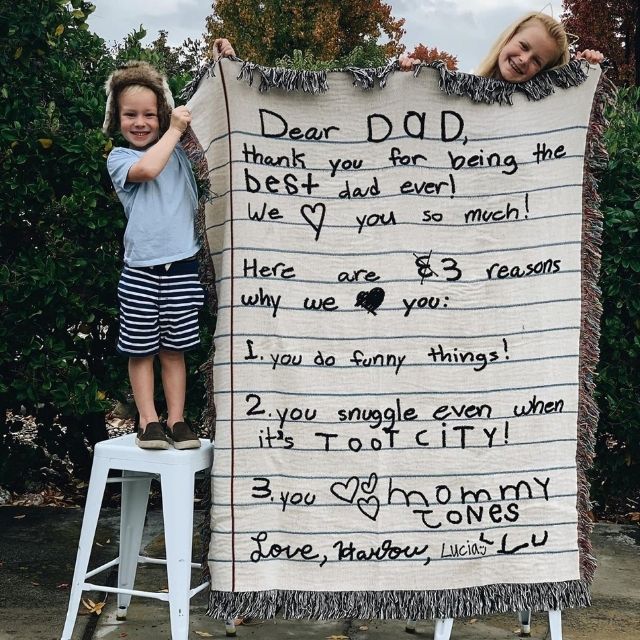 Dear DAD,
thank you for being the
best dad ever!
We ♡ you so much!
Here are 3 reasons
why we ♥ you:
1. you do funny things!
2. you snuggle even when
it's TOOT CiTY!
3. you ♡♡♡ mommy
TONES
Love, Harlow, Lucias Lu